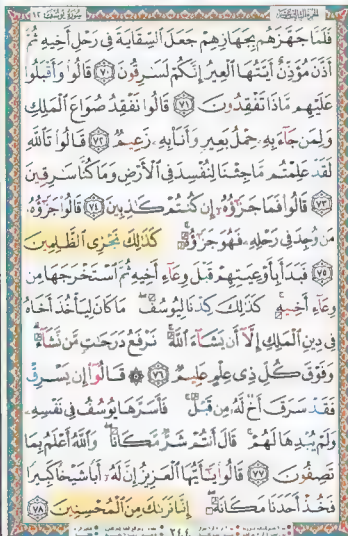 سورة يوسف ١٢
فَلَمَّا جَهَّزَهُم بِجَهَازِهِمْ جَعَلَ السِّقَايَةَ فِي رَحْلِ أَخِيهِ ثُمَّ
أَذَّنَ مُؤَذِّنٌ أَيَّتُهَا الْعِيرُ إِنَّكُمْ لَسَارِقُونَ ﴿٧٠﴾ قَالُوا وَأَقْبَلُوا
عَلَيْهِم مَّاذَا تَفْقِدُونَ ﴿٧١﴾ قَالُوا نَفْقِدُ صُوَاعَ الْمَلِكِ
وَلِمَن جَاءَ بِهِ حِمْلُ بَعِيرٍ وَأَنَا بِهِ زَعِيمٌ ﴿٧٢﴾ قَالُوا تَاللَّهِ
لَقَدْ عَلِمْتُم مَّا جِئْنَا لِنُفْسِدَ فِي الْأَرْضِ وَمَا كُنَّا سَارِقِينَ
﴿٧٣﴾ قَالُوا فَمَا جَزَاؤُهُ إِن كُنتُمْ كَاذِبِينَ ﴿٧٤﴾ قَالُوا جَزَاؤُهُ
مَن وُجِدَ فِي رَحْلِهِ فَهُوَ جَزَاؤُهُ كَذَلِكَ نَجْزِي الظَّالِمِينَ
﴿٧٥﴾ فَبَدَأَ بِأَوْعِيَتِهِمْ قَبْلَ وِعَاءِ أَخِيهِ ثُمَّ اسْتَخْرَجَهَا مِن
وِعَاءِ أَخِيهِ كَذَلِكَ كِدْنَا لِيُوسُفَ مَا كَانَ لِيَأْخُذَ أَخَاهُ
فِي دِينِ الْمَلِكِ إِلَّا أَن يَشَاءَ اللَّهُ نَرْفَعُ دَرَجَاتٍ مَّن نَّشَاءُ
وَفَوْقَ كُلِّ ذِي عِلْمٍ عَلِيمٌ ﴿٧٦﴾ ۞ قَالُوا إِن يَسْرِقْ
فَقَدْ سَرَقَ أَخٌ لَّهُ مِن قَبْلُ فَأَسَرَّهَا يُوسُفُ فِي نَفْسِهِ
وَلَمْ يُبْدِهَا لَهُمْ قَالَ أَنتُمْ شَرٌّ مَّكَانًا وَاللَّهُ أَعْلَمُ بِمَا
تَصِفُونَ ﴿٧٧﴾ قَالُوا يَا أَيُّهَا الْعَزِيزُ إِنَّ لَهُ أَبًا شَيْخًا كَبِيرًا
فَخُذْ أَحَدَنَا مَكَانَهُ إِنَّا نَرَاكَ مِنَ الْمُحْسِنِينَ ﴿٧٨﴾